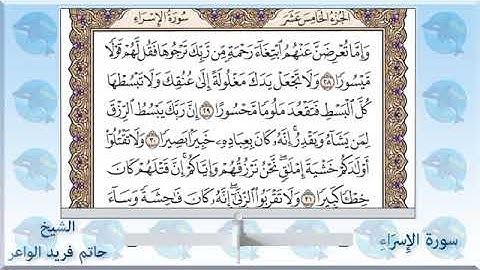 الجزء الخامس عشر
سورة الإسراء
وَإِمَّا تُعْرِضَنَّ عَنْهُمُ ٱبْتِغَآءَ رَحْمَةٍ مِّن رَّبِّكَ تَرْجُوهَا فَقُل لَّهُمْ قَوْلًا
مَّيْسُورًا ٢٨ وَلَا تَجْعَلْ يَدَكَ مَغْلُولَةً إِلَىٰ عُنُقِكَ وَلَا تَبْسُطْهَا
كُلَّ ٱلْبَسْطِ فَتَقْعُدَ مَلُومًا مَّحْسُورًا ٢٩ إِنَّ رَبَّكَ يَبْسُطُ ٱلرِّزْقَ
لِمَن يَشَآءُ وَيَقْدِرُ إِنَّهُۥ كَانَ بِعِبَادِهِۦ خَبِيرًۢا بَصِيرًا ٣٠ وَلَا تَقْتُلُوٓا۟
أَوْلَٰدَكُمْ خَشْيَةَ إِمْلَٰقٍ نَّحْنُ نَرْزُقُهُمْ وَإِيَّاكُمْ إِنَّ قَتْلَهُمْ كَانَ
خِطْـًٔا كَبِيرًا ٣١ وَلَا تَقْرَبُوا۟ ٱلزِّنَىٰٓ إِنَّهُۥ كَانَ فَٰحِشَةً وَسَآءَ
سورة الإسراءِ
الشيخ
حاتم فريد الواعر